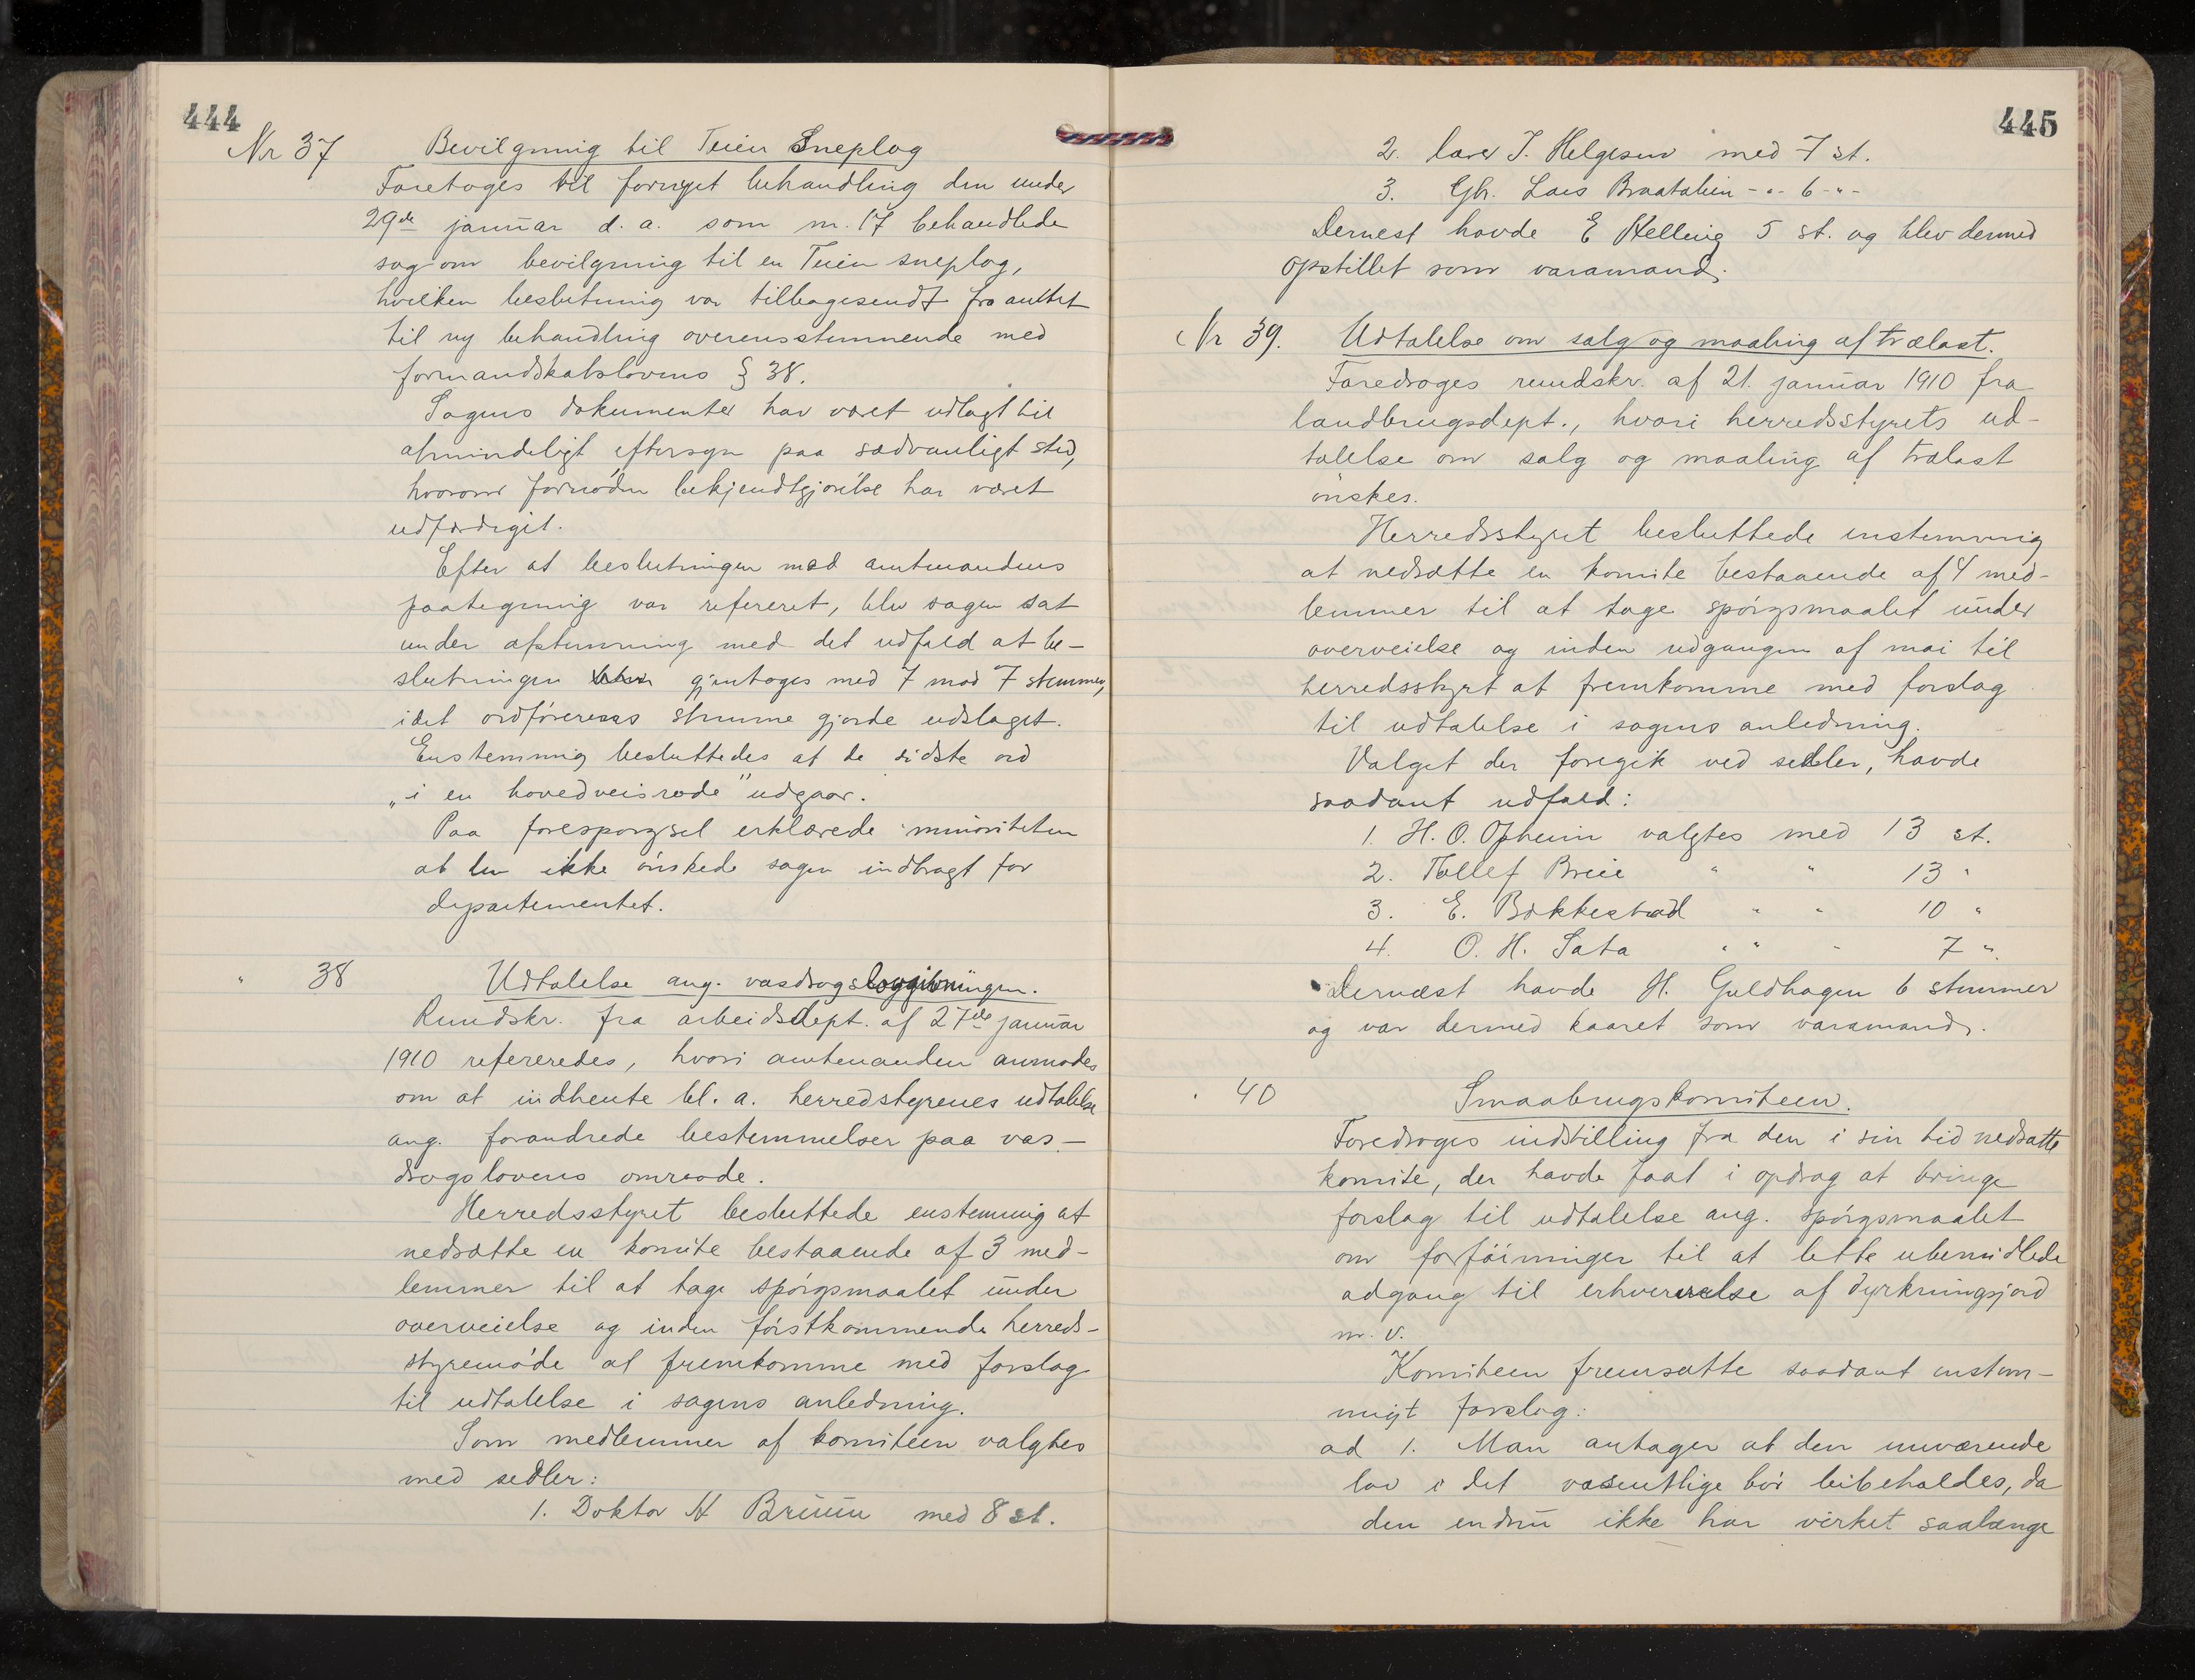 444
Nr 37 Bevilgning til Teien Sneplog
Foretoges til fornyet behandling den under
29de januar d. a. som nr. 17 behandlede
sag om bevilgning til en Teien sneplog,
hvilken beslutning var tilbagesendt fra amtet
til ny behandling overensstemmende med
formandskabslovens § 38.
Sagens dokumenter har været udlagt til
almindeligt eftersyn paa sædvanligt sted,
hvorom fornøden bekjendtgjørelse har været
udfærdiget.
Efter at beslutningen med amtmandens
paategning var refereret, blev sagen sat
under afstemning med det udfald at be-
slutningen gjentoges med 7 mod 7 stemmer,
idet ordførerens stemme gjorde udslaget.
Enstemmig besluttedes at de sidste ord
„i en hovedveisrode" udgaar.
Paa forespørgsel erklærede minoriteten
at den ikke ønskede sagen indbragt for
departementet.
" 38 Udtalelse ang. vasdragslovgivningen.
Rundskr. fra arbeidsdept. af 27de januar
1910 refereredes, hvori amtmanden anmodes
om at indhente bl. a. herredstyrenes udtalelse
ang. forandrede bestemmelser paa vas-
dragslovens omraade.
Herredsstyret besluttede enstemmig at
nedsætte en komite bestaaende af 3 med-
lemmer til at tage spørgsmaalet under
overveielse og inden førstkommende herreds-
styremøde at fremkomme med forslag
til udtalelse i sagens anledning.
Som medlemmer af komiteen valgtes
med sedler:
1. Doktor H Bruun med 8 st.
445
2. lærer T. Helgesen med 7 st.
3. Gbr. Lars Braatalien - " - 6 - " -
Dernest havde E Helling 5 st. og blev dermed
opstillet som varamand.
Nr 39. Udtalelse om salg og maaling af trælast.
Foredroges rundskr. af 21. januar 1910 fra
landbrugsdept., hvori herredsstyrets ud-
talelse om salg og maaling af trælast
ønskes.
Herredsstyret besluttede enstemmig
at nedsætte en komite bestaaende af 4 med-
lemmer til at tage spørgsmaalet under
overveielse og inden udgangen af mai til
herredsstyrt at fremkomme med forslag
til udtalelse i sagens anledning.
Valget der foregik ved sedler, havde
saadant udfald:
1. H. O. Opheim valgtes med 13 st.
2. Tollef Breie " " 13 "
3. E. Bækkestad " " 10 "
4. O. H. Sata " " " 7 "
Dernæst havde H. Guldhagen 6 stemmer
og var dermed kaaret som varamand.
" 40 Smaabrugskomiteen.
Foredroges indstilling fra den i sin tid nedsatte
komite, der havde faat i opdrag at bringe
forslag til udtalelse ang. spørgsmaalet
om forføininger til at lette ubemidlede
adgang til erhvervelse af dyrkningsjord
m. v.
Komiteen fremsatte saadant enstem-
migt forslag:
ad 1. Man antager at den nuværende
lov i det væsentlige bør beibeholdes, da
den endnu ikke har virket saalænge